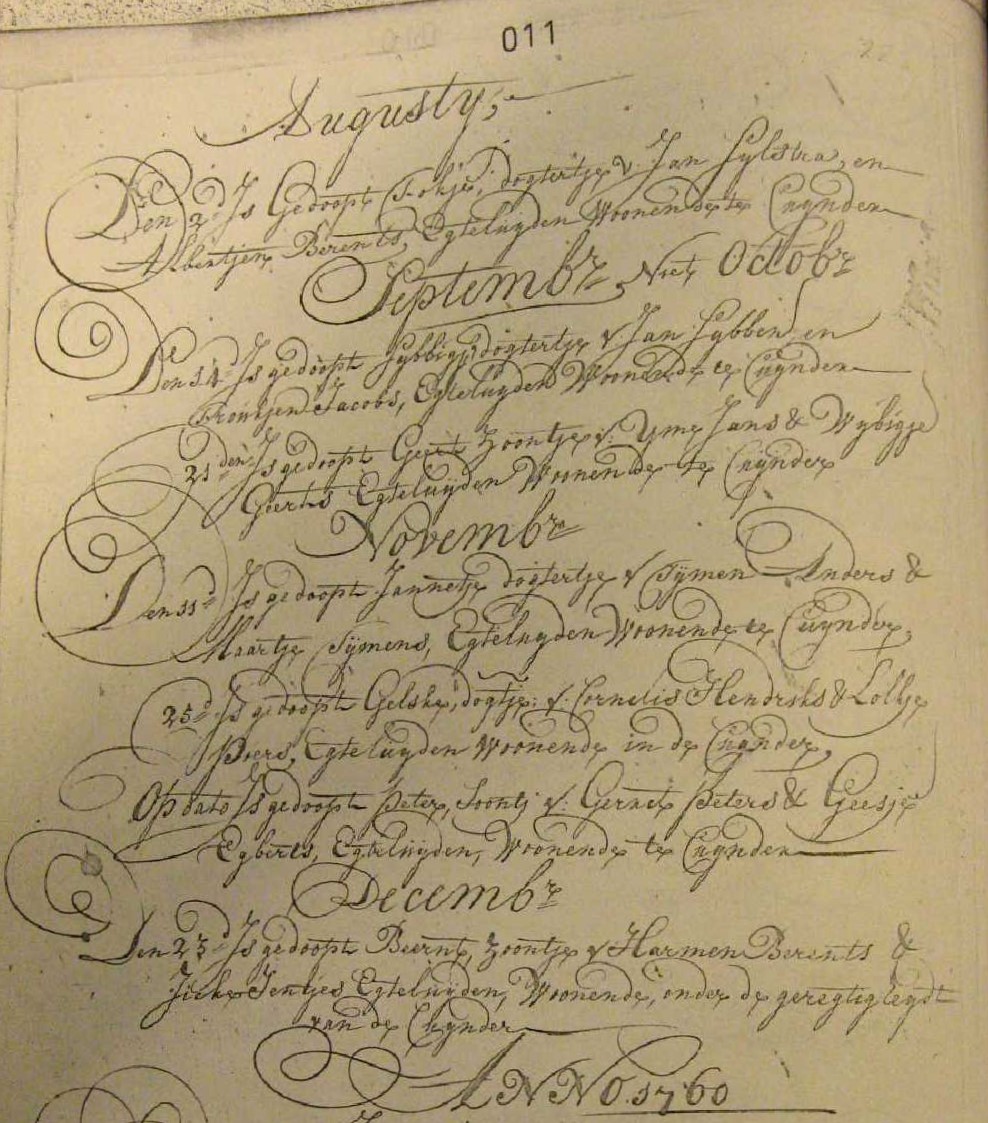 011
22
Augusty,
Den 2d Is Gedoopt Fokje, dogtertje v. Jan Sylstra, en
Albertjen Berents, Egteluyden Woonende te Cuynder
Septembr, Niet Octobr
Den 14d Is gedoopt Sybbigje dogtertje v Jan Sybben, en
Trontjen Jacobs, Egteluyden Woonende te Cuynder
21den Is gedoopt Geert Zoontje v. Yme Jans & Wybigje
Geerts Egteluyden Woonende te Cuynder
Novembr
Den 11d Is gedoopt Jannetje dogtertje v Symen Anders &
Maartje Symens, Egteluyden Woonende te Cuynder,
25d Is gedoopt Gelske, dogtje: v. Cornelis Hendriks & Lolkje
Poers, Egteluyden Woonende in de Cuynder,
Op dato Is gedoopt Peter, Soontj v. Gerret Peters & Geesje
Egberts, Egteluyden, Woonende te Cuynder
Decembr
Den 23d Is gedoopt Beernt, Zoontje v Harmen Berents &
Jentjes Egteluyden, Woonende, onder de geregtigheydt
van de Cuynder
ANNO 1760